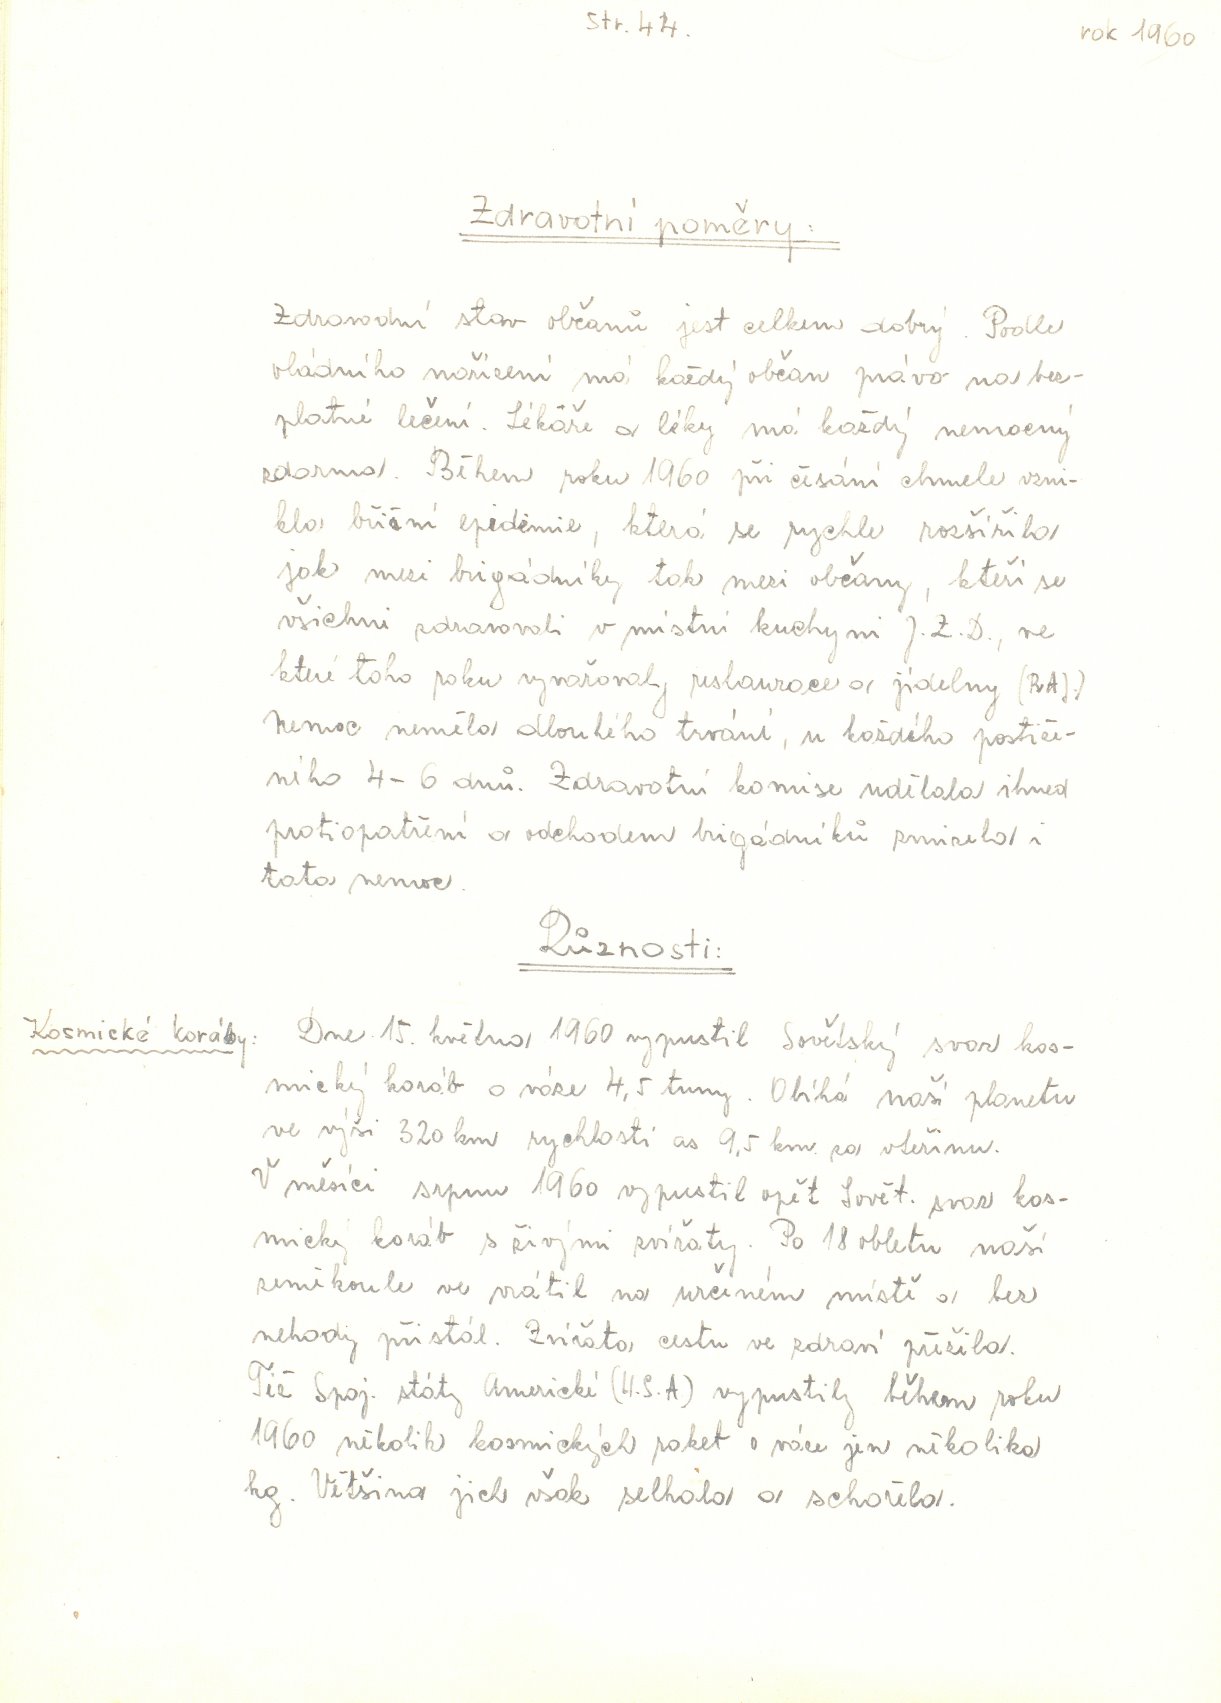 Str. 44.
rok 1960
Zdravotní poměry:
Zdravodní stav občanů jest celkem dobrý. Podle
vládního nařízení má každý občan právo na bez-
platné lečení. Lékáře a léky má každý nemocný
zdarma. Během roku 1960 při česání chmele vzni-
kla břišní epidemie, která se rychle rozšířila
jak mezi brigádníky tak mezi občany, kteří se
všichni zdravovali v místní kuchyni J.Z.D., ve
které toho roku vyvařovaly restaurace a jídelny (RAJ.)
Nemoc neměla dlouhého trvání, u každého postiže-
ného 4-6 dnů. Zdravotní komise udělala ihned
protiopatření a odchodem brigádníků zmizela i
tato nemoc.
Různosti:
Kosmické koráby: Dne 15. května 1960 vypustil Sovětský svaz kos-
mický koráb o váze 4,5 tuny. Obíhá naší planetu
ve výši 320 km rychlostí as 9,5 km za vteřinu.
V měsíci srpnu 1960 vypustil opět Sovět. svaz kos-
mický koráb s živými zvířaty. Po 18 obletu naší
zeměkoule ve vrátil na určeném místě a bez
nehody přistál. Zvířata cestu ve zdraví přežila.
Též Spoj. státy Americké (U.S.A) vypustily během roku
1960 několik kosmických raket o váze jen několika
kg. Většina jich však selhala a schořela.